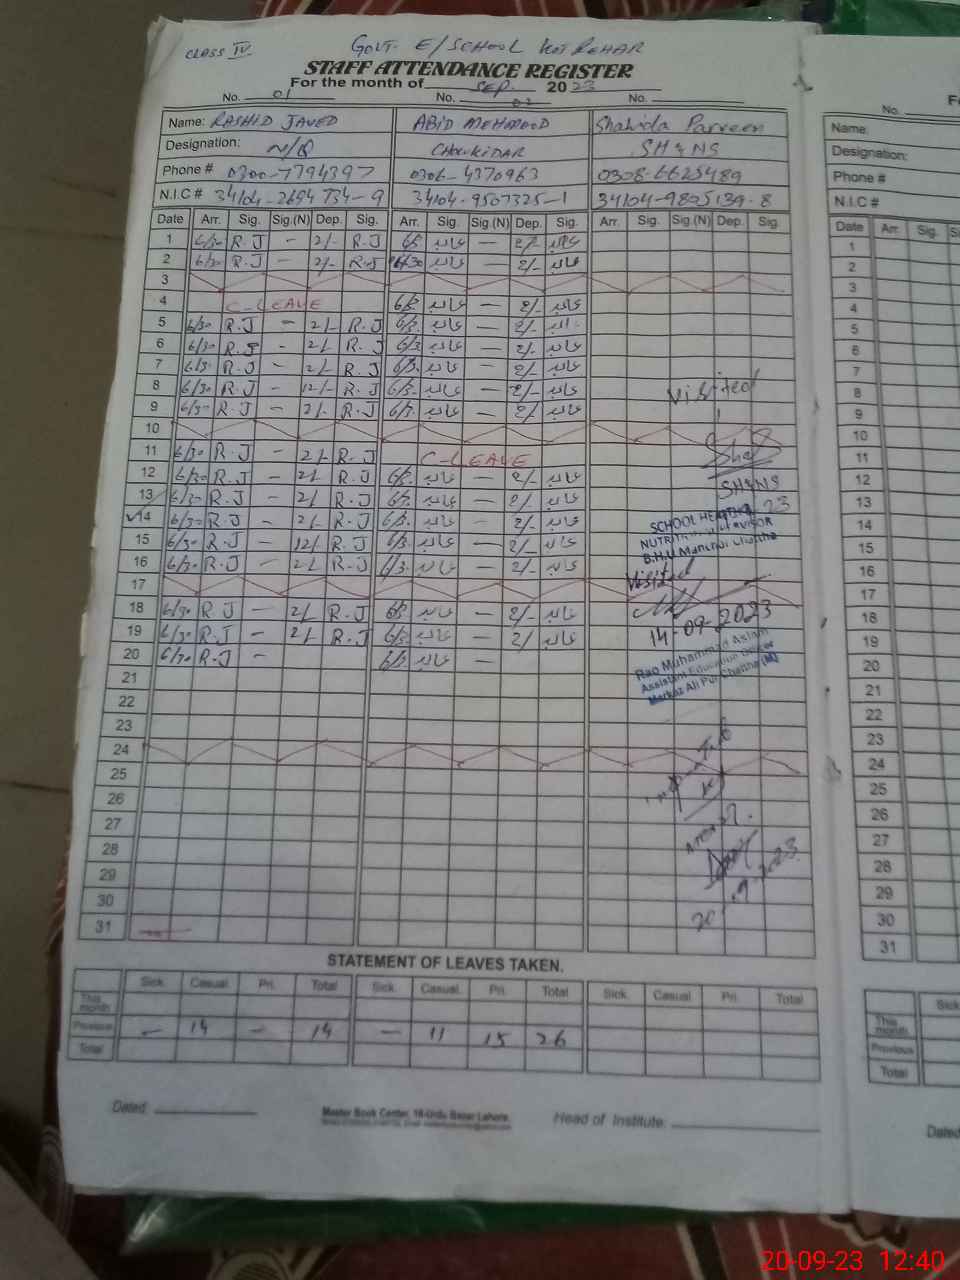 CLASS IV.
GOVT. E/SCHOOL KOT REHAR
STAFF ATTENDANCE REGISTER
For the month of SEP. 2023
No. 01 No. 02 No.
Name: RASHID JAVED ABID MEHMOOD Shahida Parveen
Designation: N/Q CHOUKIDAR SH&NS
Phone # 0300-7794397 0306-4370963 0308-6625489
N.I.C # 34104-2694734-9 34104-9507325-1 34104-9805139-8
Date Arr. Sig. Sig.(N) Dep. Sig. Arr. Sig. Sig.(N) Dep. Sig. Arr. Sig. Sig.(N) Dep. Sig.
1 6/30 R.J - 2/- R.J 6/3 عابد - 2/- عابد
2 6/30 R.J - 2/- R.J 6/30 عابد - 2/- عابد
3
4 C-LEAVE 6/3 عابد - 2/- عابد
5 6/30 R.J - 2/- R.J 6/3 عابد - 2/- عابد
6 6/30 R.J - 2/- R.J 6/3 عابد - 2/- عابد
7 6/30 R.J - 2/- R.J 6/3 عابد - 2/- عابد
8 6/30 R.J - 12/- R.J 6/3 عابد - 2/- عابد
Visited
9 6/30 R.J - 2/- R.J 6/3 عابد - 2/ عابد
10
11 6/30 R.J - 2/- R.J C-LEAVE
12 6/30 R.J - 2/- R.J 6/3 عابد - 2/- عابد
SH&NS
13 6/30 R.J - 2/- R.J 6/3 عابد - 2/ عابد
23
14 6/30 R.J - 2/- R.J 6/3 عابد - 2/- عابد
SCHOOL HEALTH &
NUTRITION SUPERVISOR
B.H.U Manchar Chattha
15 6/30 R.J - 12/- R.J 6/3 عابد - 2/- عابد
16 6/30 R.J - 2/- R.J 6/3 عابد - 2/- عابد
Visited
17
18 6/30 R.J - 2/- R.J 6/3 عابد - 2/- عابد
14-09-2023
19 6/30 R.J - 2/- R.J 6/3 عابد - 2/ عابد
20 6/30 R.J - 6/3 عابد -
Rao Muhammad Aslam
Assistant Education Officer
Markaz Ali Pur Chattha (M)
21
22
23
24
25
26
27
28
29
30
31
STATEMENT OF LEAVES TAKEN.
Sick. Casual. Pri. Total Sick. Casual. Pri. Total Sick. Casual Pri. Total
This month
Previous - 14 - 14 - 11 15 26
Total
Dated: Master Book Center, 16-Urdu Bazar Lahore. Head of Institute.
No.
Name:
Designation:
Phone #
N.I.C #
Date Arr. Sig.
1
2
3
4
5
6
7
8
9
10
11
12
13
14
15
16
17
18
19
20
21
22
23
24
25
26
27
28
29
30
31
Sick
This month
Previous
Total
Dated
20-09-23 12:40